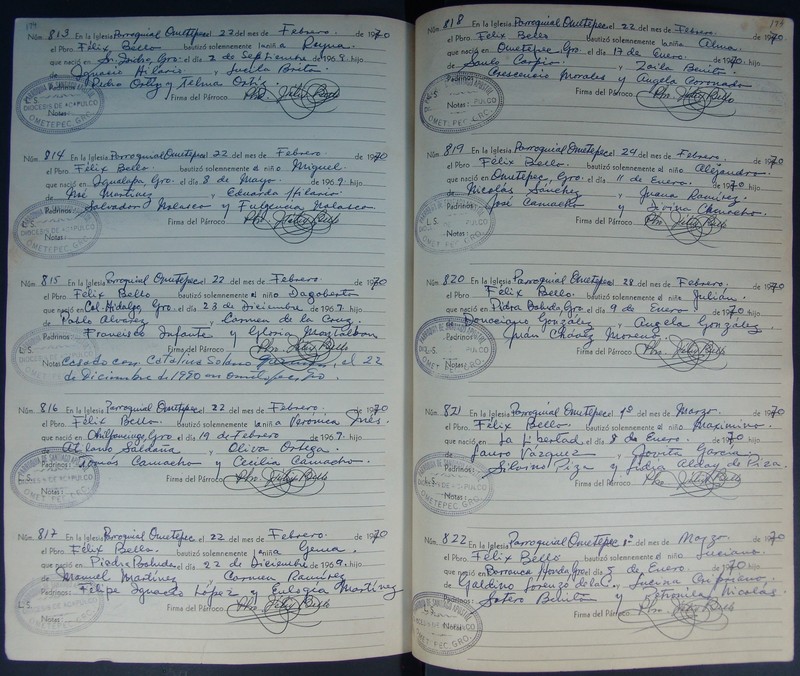 174
Núm. 813 En la Iglesia Parroquial Ometepec 22 del mes de Febrero. de 1970
el Pbro. Félix Bello bautizó solemnemente la niña Reyna
que nació en Sn. Pedro, Gro. el día 2 de Septiembre de 1969. hijo
de Ignacio Hilario y Julita Brito
Padrinos: Pedro Ortiz y Telma Ortiz.
L. S. Firma del Párroco Pbro. Félix Bello
Notas:
PARROQUIA DE SANTIAGO APOSTOL
DIOCESIS DE ACAPULCO
OMETEPEC, GRO.
Núm. 814 En la Iglesia Parroquial Ometepec 22 del mes de Febrero. de 1970
el Pbro. Félix Bello. bautizó solemnemente al niño Miguel.
que nació en Igualapa, Gro. el día 8 de Mayo. de 1969. hijo
de José Martínez y Eduarda Hilario
Padrinos: Salvador Nolasco y Fulgencia Nolasco
L. S. Firma del Párroco Pbro. Félix Bello
Notas:
Núm. 815 En la Iglesia Parroquial Ometepec 22 del mes de Febrero. de 1970
el Pbro. Félix Bello bautizó solemnemente al niño Dagoberto
que nació en Col. Hidalgo, Gro. el día 23 de Diciembre de 1969. hijo
de Pablo Alvarez y Carmen de la Cruz.
Padrinos: Francisco Infante y Gloria Montalban
L. S. Firma del Párroco Pbro. Félix Bello
Notas: Casado con Catalina Solano el 22
de Diciembre de 1990 en Ometepec, Gro.
Núm. 816 En la Iglesia Parroquial Ometepec 22 del mes de Febrero. de 1970
el Pbro. Félix Bello. bautizó solemnemente la niña Verónica Inés.
que nació en Chilpancingo, Gro. el día 19 de Febrero de 1969. hijo
de Atilano Saldaña y Oliva Ortega.
Padrinos: Tomás Camacho y Cecilia Camacho.
L. S. Firma del Párroco Pbro. Félix Bello
Notas:
Núm. 817 En la Iglesia Parroquial Ometepec el 22 del mes de Febrero. de 1970
el Pbro. Félix Bello. bautizó solemnemente la niña Gema.
que nació en Piedra Boluda el día 22 de Diciembre de 1969. hijo
de Manuel Martínez y Carmen Ramírez
Padrinos: Felipe Ignacio López y Eulogia Martínez
L. S. Firma del Párroco Pbro. Félix Bello
Notas:
174
Núm. 818 En la Iglesia Parroquial Ometepec el 22 del mes de Febrero. de 1970
el Pbro. Félix Bello bautizó solemnemente la niña Alma.
que nació en Ometepec Gro. el día 17 de Enero. de 1970 hijo
de Saúl Carpio y Zoila Benito.
Padrinos: Crescencio Morales y Angela Coronado
L. S. Firma del Párroco Pbro. Félix Bello
Notas:
Núm. 819 En la Iglesia Parroquial Ometepec el 24 del mes de Febrero. de 1970
el Pbro. Félix Bello. bautizó solemnemente al niño Alejandro
que nació en Ometepec, Gro. el día 11 de Enero. de 1970. hijo
de Nicolás Sánchez y Juana Ramírez.
Padrinos: José Camacho y Camacho.
L. S. Firma del Párroco Pbro. Félix Bello
Notas:
Núm. 820 En la Iglesia Parroquial Ometepec 28 del mes de Febrero. de 1970
el Pbro. Félix Bello. bautizó solemnemente al niño Julián.
que nació en Piedra Boluda Gro. el día 9 de Enero de 1970 hijo
de Donaciano González y Angela González
Padrinos: Juan Chávez Moreno.
L. S. Firma del Párroco Pbro. Félix Bello
Notas:
Núm. 821 En la Iglesia Parroquial Ometepec el 1º del mes de Marzo. de 1970
el Pbro. Félix Bello. bautizó solemnemente al niño Maximino.
que nació en La Libertad el día 8 de Enero. de 1970 hijo
de Lauro Vazquez y Jovita García.
Padrinos: Silvino Piza y Alday de Piza.
L. S. Firma del Párroco Pbro. Félix Bello
Notas:
Núm. 822 En la Iglesia Parroquial Ometepec 1º del mes de Marzo. de 1970
el Pbro. Félix Bello bautizó solemnemente al niño Luciano.
que nació en Barranca Honda, Gro. el día 5 de Enero. de 1970 hijo
de Galdino Lorenzo de la y Lucina Cipriano.
Padrinos: Sotero Benito y Petronila Nicolás.
L. S. Firma del Párroco Pbro. Félix Bello
Notas: